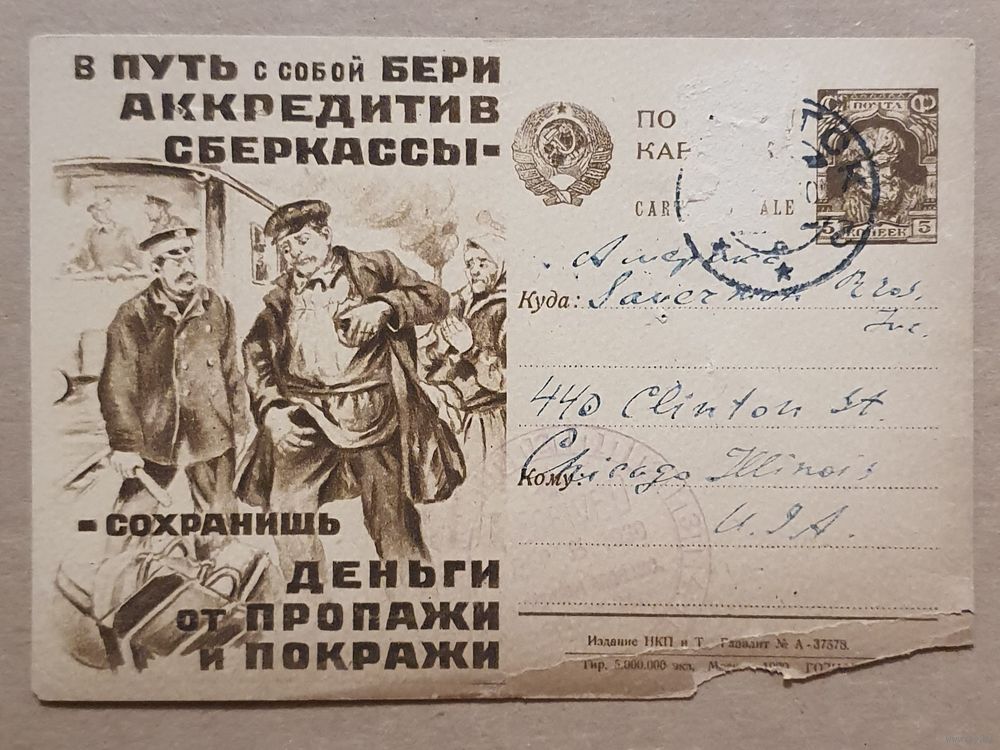 В ПУТЬ С СОБОЙ БЕРИ
АККРЕДИТИВ
СБЕРКАССЫ-
-СОХРАНИШЬ
ДЕНЬГИ
ОТ ПРОПАЖИ
И ПОКРАЖИ
ПО
КАР
CAR ALE
ПОЧТА
5 КОПЕЕК 5
Америка
Куда: Bros.
Inc.
440 Clinton St.
Кому: Chicago Illinois
U.S.A.
Издание НКП и Т. Главлит № А-37578.
Тир. 5.000.000 экз.